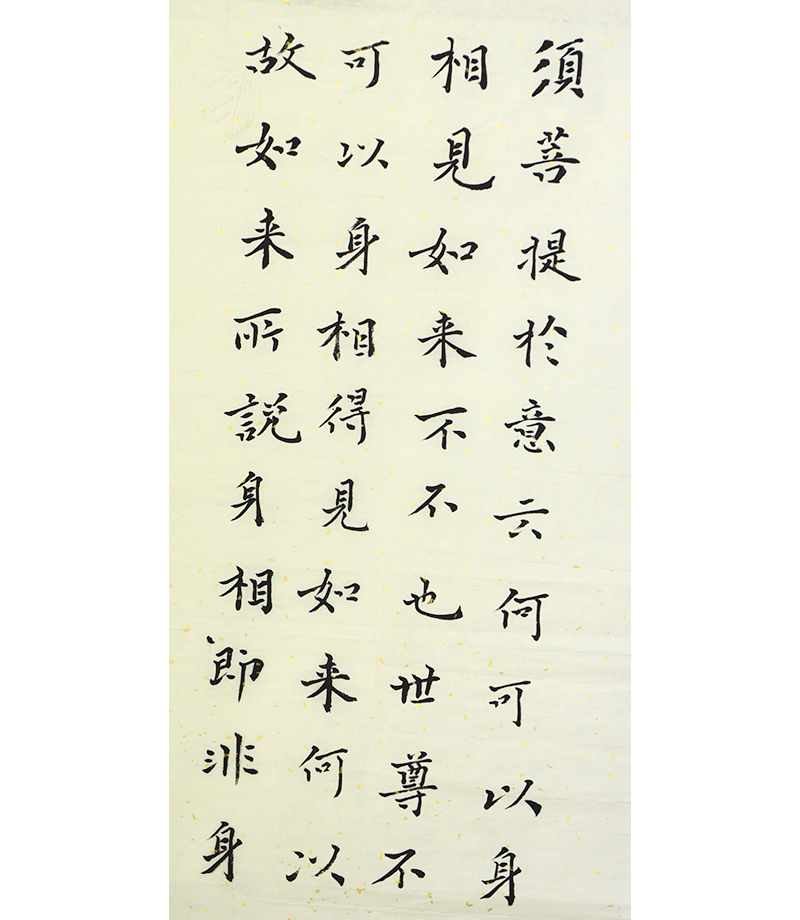 須菩提於意云何可以身
相見如来不不也世尊不
可以身相得見如来何以
故如来所説身相即非身